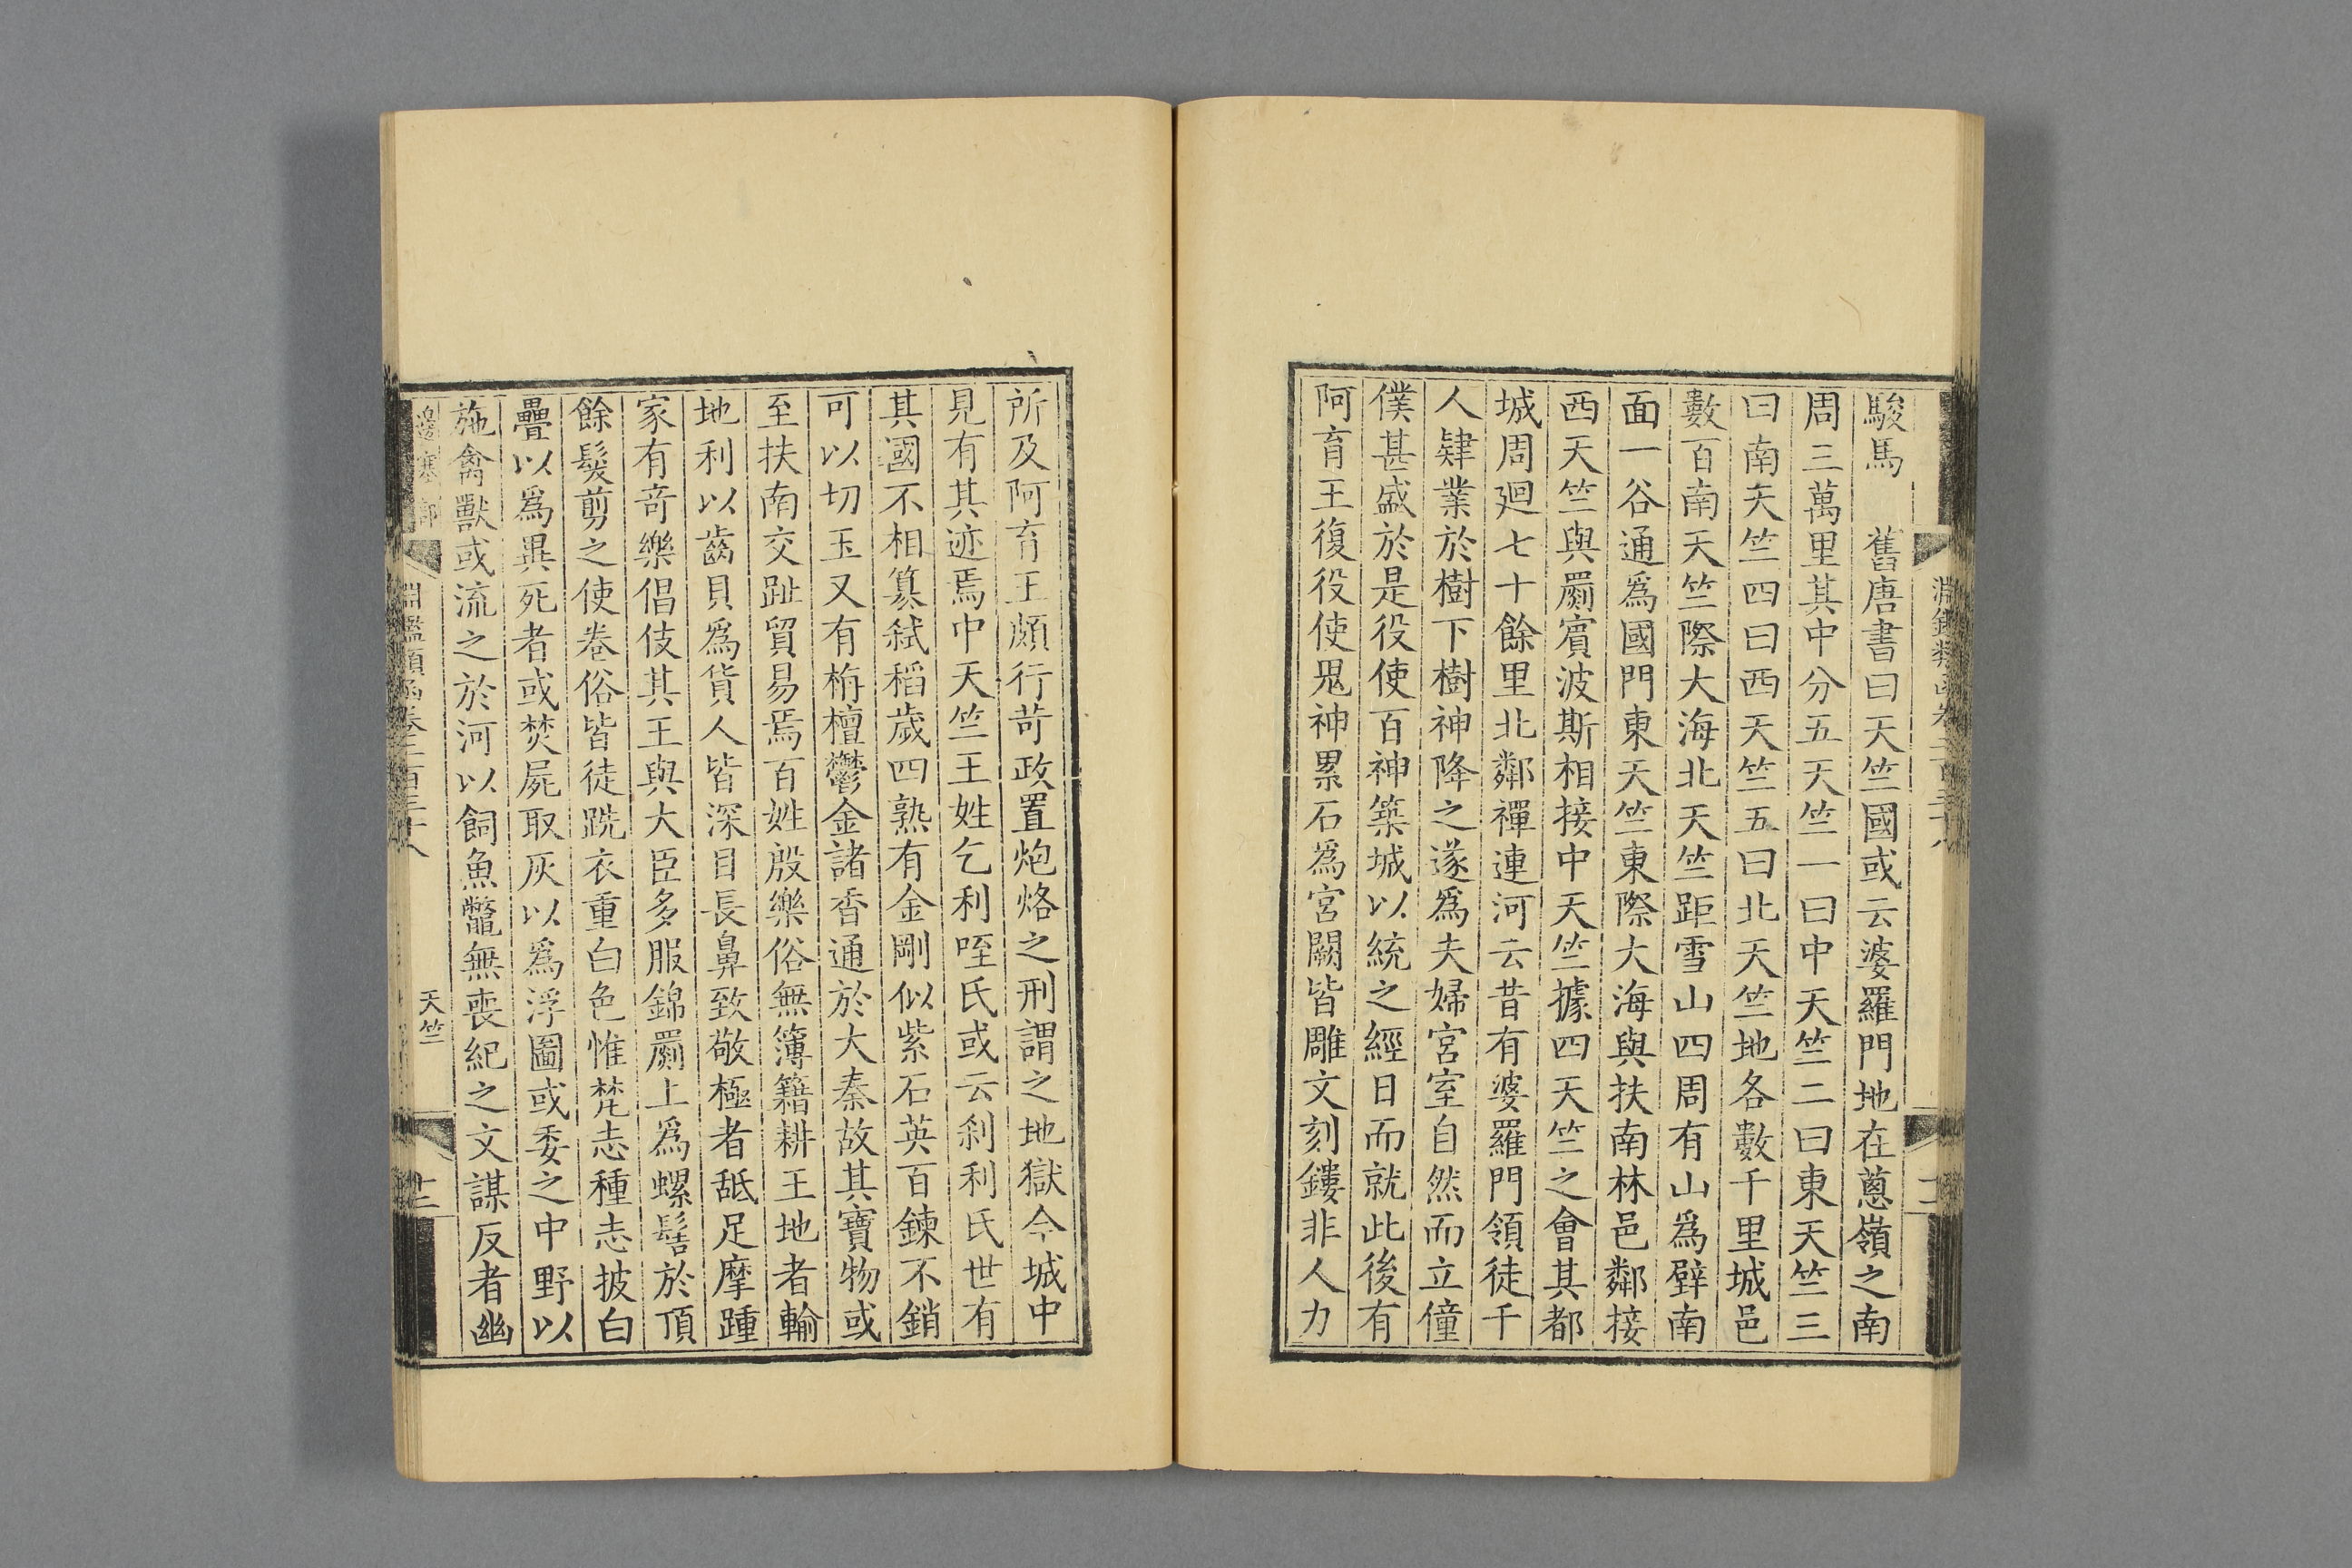 駿馬　舊唐書曰天竺國或云婆羅門地在蔥嶺之南
周三萬里其中分五天竺一曰中天竺二曰東天竺三
曰南天竺四曰西天竺五曰北天竺地各數千里城邑
數百南天竺際大海北天竺距雪山四周有山爲壁南
面一谷通爲國門東天竺東際大海與扶南林邑鄰接
西天竺與罽賓波斯相接中天竺據四天竺之會其都
城周廻七十餘里北鄰禪連河云昔有婆羅門領徒千
人肄業於樹下樹神降之遂爲夫婦宮室自然而立僮
僕甚盛於是役使百神築城以統之經日而就此後有
阿育王復役使鬼神累石爲宮闕皆雕文刻鏤非人力
所及阿育王頗行苛政置炮烙之刑謂之地獄今城中
見有其迹焉中天竺王姓乞利咥氏或云刹利氏世有
其國不相篡弒稻歲四熟有金剛似紫石英百鍊不銷
可以切玉又有栴檀鬱金諸香通於大秦故其寶物或
至扶南交趾貿易焉百姓殷樂俗無簿籍耕王地者輸
地利以齒貝爲貨人皆深目長鼻致敬極者舐足摩踵
家有竒樂倡伎其王與大臣多服錦罽上爲螺髻於頂
餘髮剪之使卷俗皆徒跣衣重白色惟梵志種志披白
疊以爲異死者或焚屍取灰以爲浮圖或委之中野以
施禽獸或流之於河以飼魚鼈無喪紀之文謀反者幽
邊塞部
淵鑑類函卷二百三十八
天竺